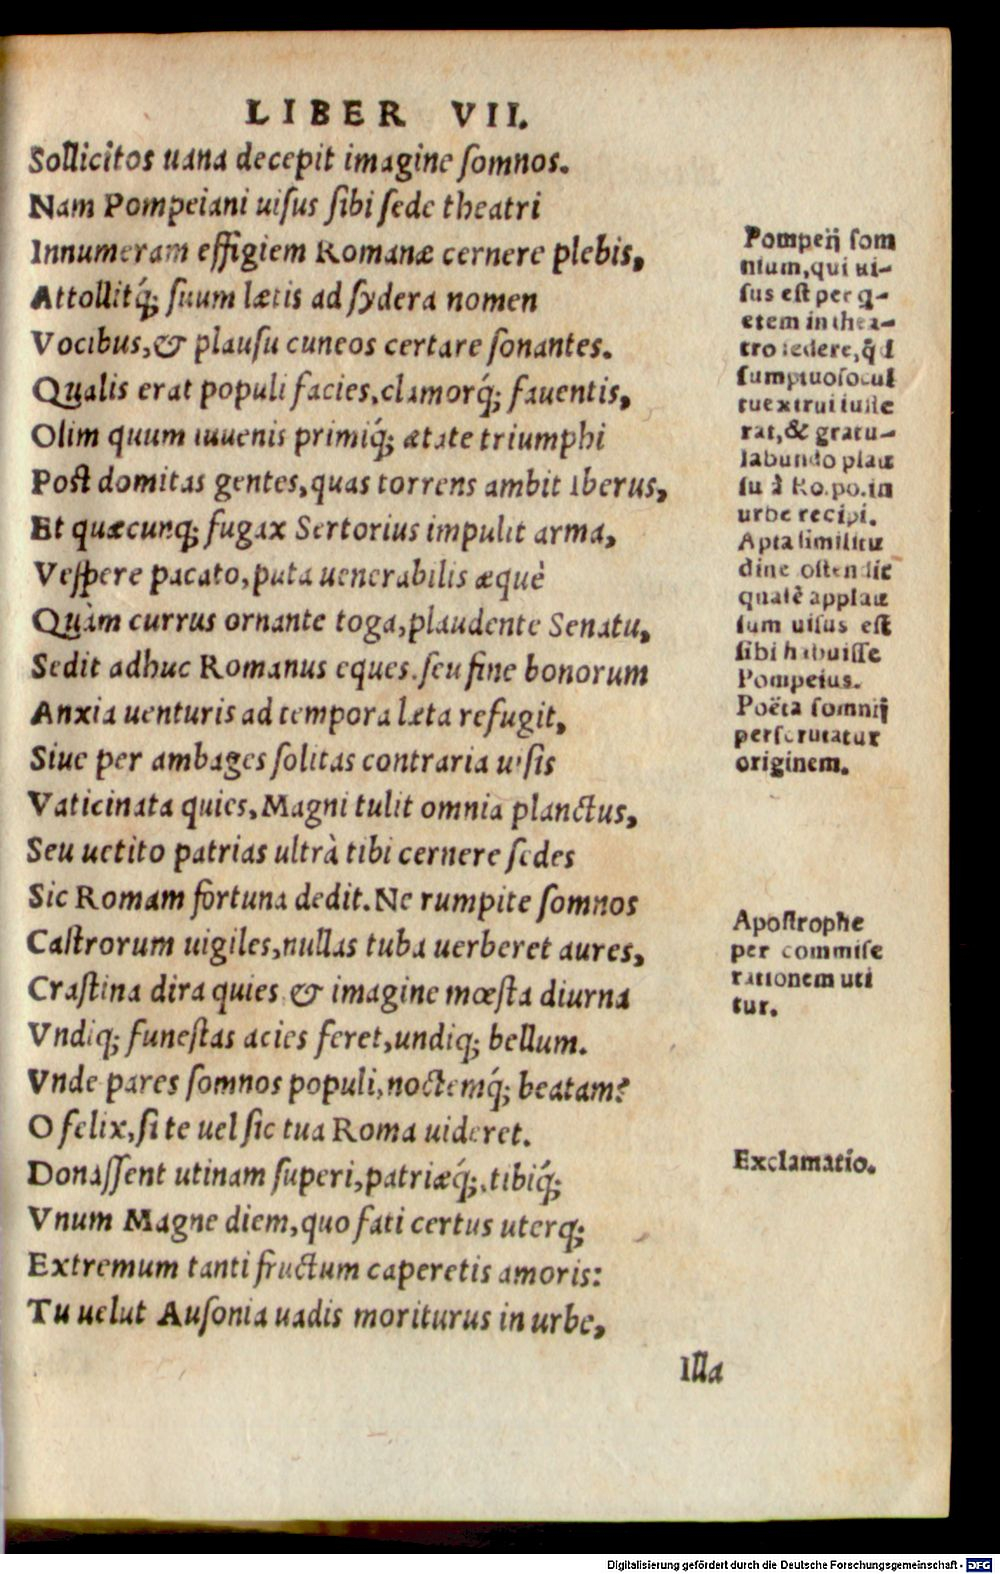 LIBER VII.
Sollicitos uana decepit imagine ſomnos.
Nam Pompeiani uiſus ſibi ſede theatri
Innumeram effigiem Romanæ cernere plebis,
Attollitq́; ſuum lætis ad ſydera nomen
Vocibus, & plauſu cuneos certare ſonantes.
Qualis erat populi facies, clamorq́; fauentis,
Olim quum iuuenis primiq́; ætate triumphi
Poſt domitas gentes, quas torrens ambit Iberus,
Et quæcunq; fugax Sertorius impulit arma,
Veſpere pacato, puta uenerabilis æquè
Quàm currus ornante toga, plaudente Senatu,
Sedit adhuc Romanus eques. ſeu fine bonorum
Anxia uenturis ad tempora læta refugit,
Siue per ambages ſolitas contraria uiſis
Vaticinata quies, Magni tulit omnia planctus,
Seu uetito patrias ultrà tibi cernere ſedes
Sic Romam fortuna dedit. Ne rumpite ſomnos
Caſtrorum uigiles, nullas tuba uerberet aures,
Craſtina dira quies & imagine mœſta diurna
Vndiq; funeſtas acies feret, undiq; bellum.
Vnde pares ſomnos populi, noctemq́; beatam?
O felix, ſi te uel ſic tua Roma uideret.
Donaſſent utinam ſuperi, patriæq́;, tibiq́;
Vnum Magne diem, quo fati certus uterq;
Extremum tanti fructum caperetis amoris:
Tu uelut Auſonia uadis moriturus in urbe,
Illa
Pompeij ſom
nium, qui ui-
ſus eſt per q-
etem in thea-
tro ſedere, q̃d
ſumptuoſo cul
tu extrui iuſſe
rat, & gratu-
labundo plau
ſu à Ro. po. in
urbe recipi.
Apta ſimilitu
dine oſtendit
qualẽ applau
ſum uiſus eſt
ſibi habuiſſe
Pompeius.
Poëta ſomnij
perſcrutatur
originem.
Apoſtrophe
per commiſe
rationem uti
tur.
Exclamatio.
Digitalisierung gefördert durch die Deutsche Forschungsgemeinschaft - DFG